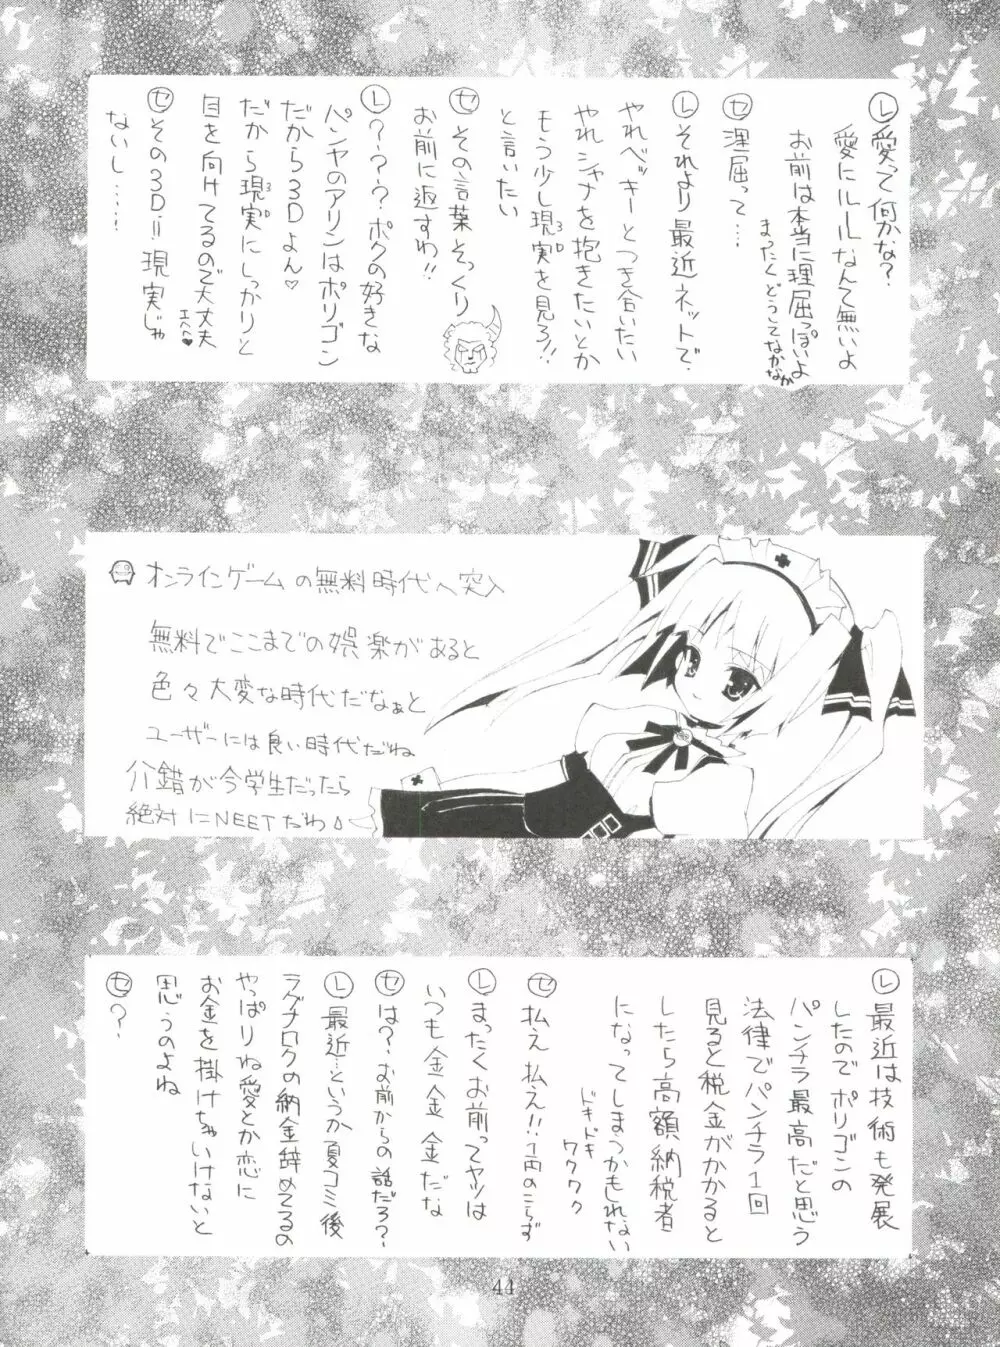 Ⓛ愛って何かな?
愛にルールなんて無いよ
お前は本当に理屈っぽいよ
まったくどうしてなかなか
㋝理屈って…
Ⓛそれより最近ネットで、
やれベッキーとつき合いたい
やれシャナを抱きたいとか
もう少し現実を見ろ!!
3D
と言いたい
㋝その言葉そっくり
お前に返すわ!!
Ⓛ???ボクの好きな
パンヤのアリンはポリゴン
だから3Dよん♡
だから現実にしっかりと
3D
目を向けてるので大丈夫
エヘヘ♥
㋝その3D=現実じゃ
ないし……
オンラインゲームの無料時代へ突入
無料でここまでの娯楽があると
色々大変な時代だなぁと
ユーザーには良い時代だね
介錯が今学生だったら
絶対にNEETだわ
Ⓛ最近は技術も発展
したのでポリゴンの
パンチラ最高だと思う
法律でパンチラ1回
見ると税金がかかると
したら高額納税者
になってしまうかもしれない
ドキドキ
ワクワク
㋝払え払え!!1円のこらず
Ⓛまったくお前ってヤツは
いつも金金金だな
㋝は?お前からの話だろ?
Ⓛ最近…というか夏コミ後
ラグナロクの納金辞めてるの
やっぱりね愛とか恋に
お金を掛けちゃいけないと
思うのよね
㋝?
44